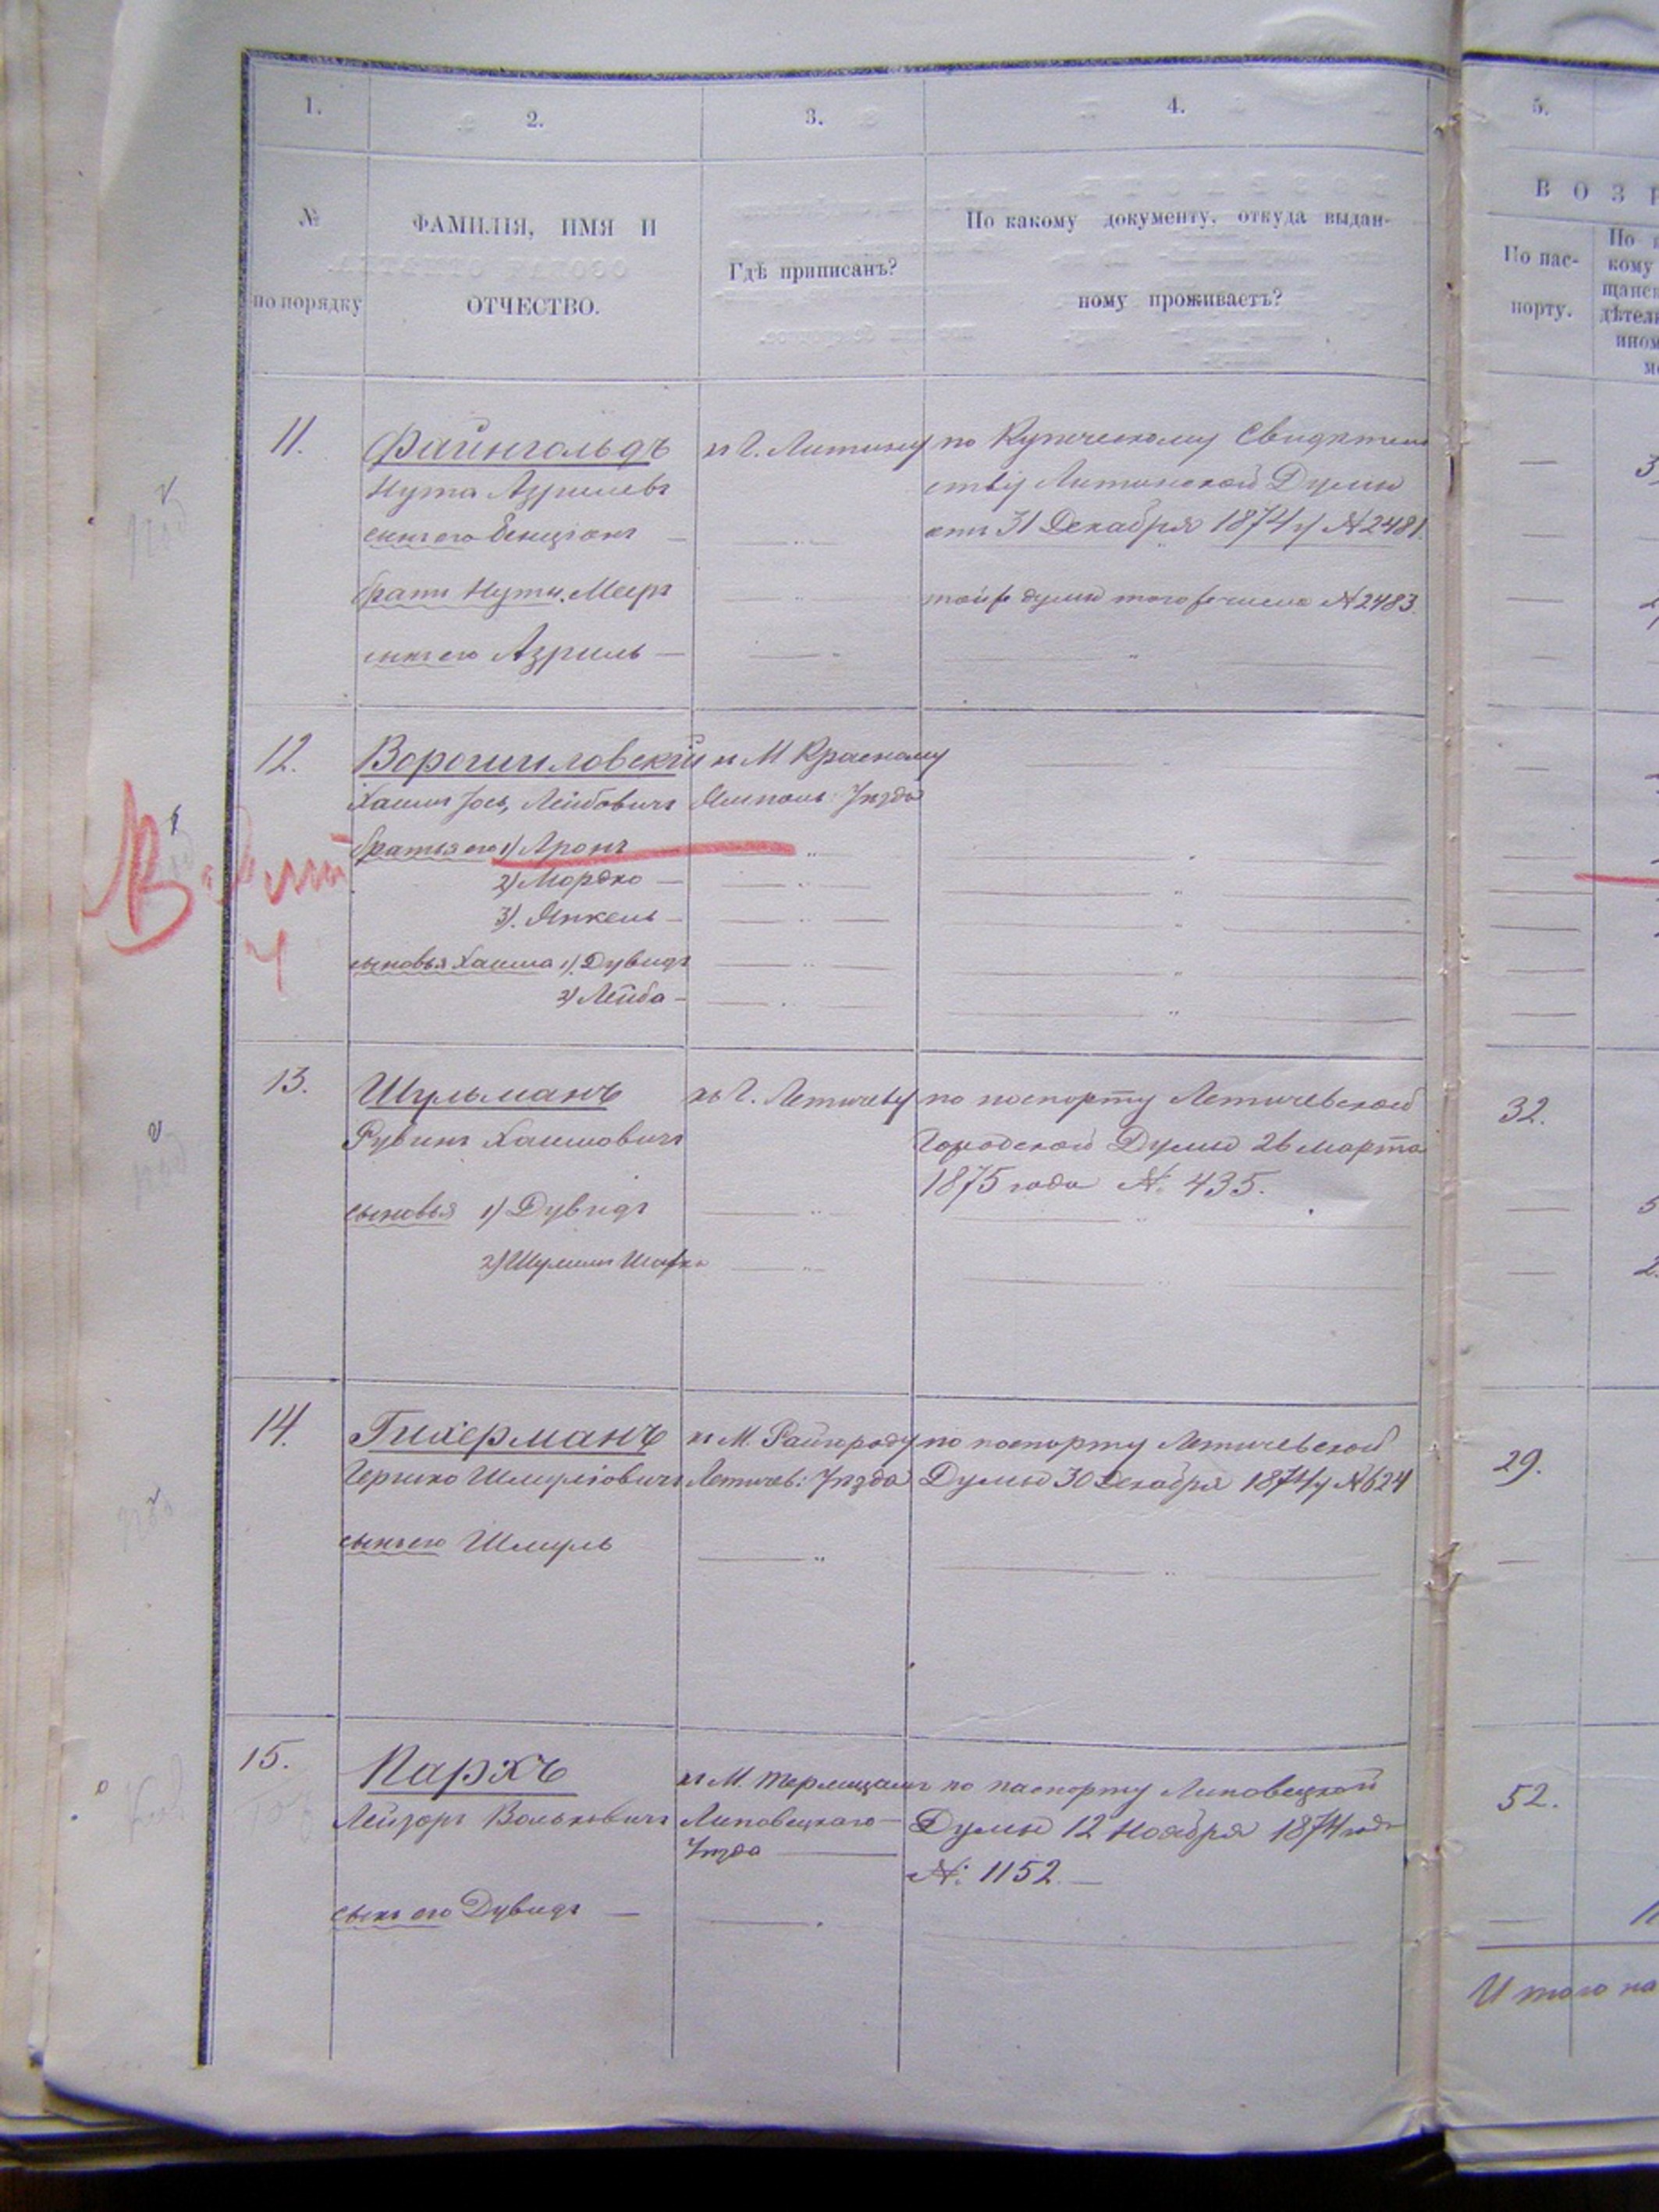 1. 2. 3. 4. 5.
№ по порядку
ФАМИЛІЯ, ИМЯ И
ОТЧЕСТВО.
Гдѣ приписанъ?
По какому документу, откуда выдан-
ному проживаетъ?
По пас-
порту.
11. Файнгольдъ къ Г. Литину по Купеческому Свидѣтель
Нута Азрилевъ ству Литинской Думы
сынъ его Бенціонъ — отъ 31 Декабря 1874 г №2481.
братъ Нуты. Мееръ той же думы того же числа №2483.
сынъ его Азриль —
12. Ворошиловскій къ М Красному
Хаимъ Іось, Лейбовичъ Ямполь: Уѣзда
братья его 1) Аронъ
2) Мордко —
3). Янкель —
сыновья Хаима 1). Дувидъ
2) Лейба —
13. Шульманъ къ Г. Летичеву по паспорту Летичевской 32.
Рувинъ Хаимовичъ Городской Думы 26 марта
1875 года №. 435.
сыновья 1) Дувидъ
2) Шулимъ
14. Гихерманъ къ М. Райгороду по паспорту Летичевской 29.
Гершко Шмуліовичъ Летичев: Уѣзда Думы 30 Декабря 1874 г №624
сынъ его Шмуль
15. Пархъ по паспорту Липовецкой 52.
Лейзоръ Вольковичъ Липовецкаго Думы 12 Ноября 1874 года
Уѣзда — №: 1152. —
сынъ его Дувидъ —
Итого на